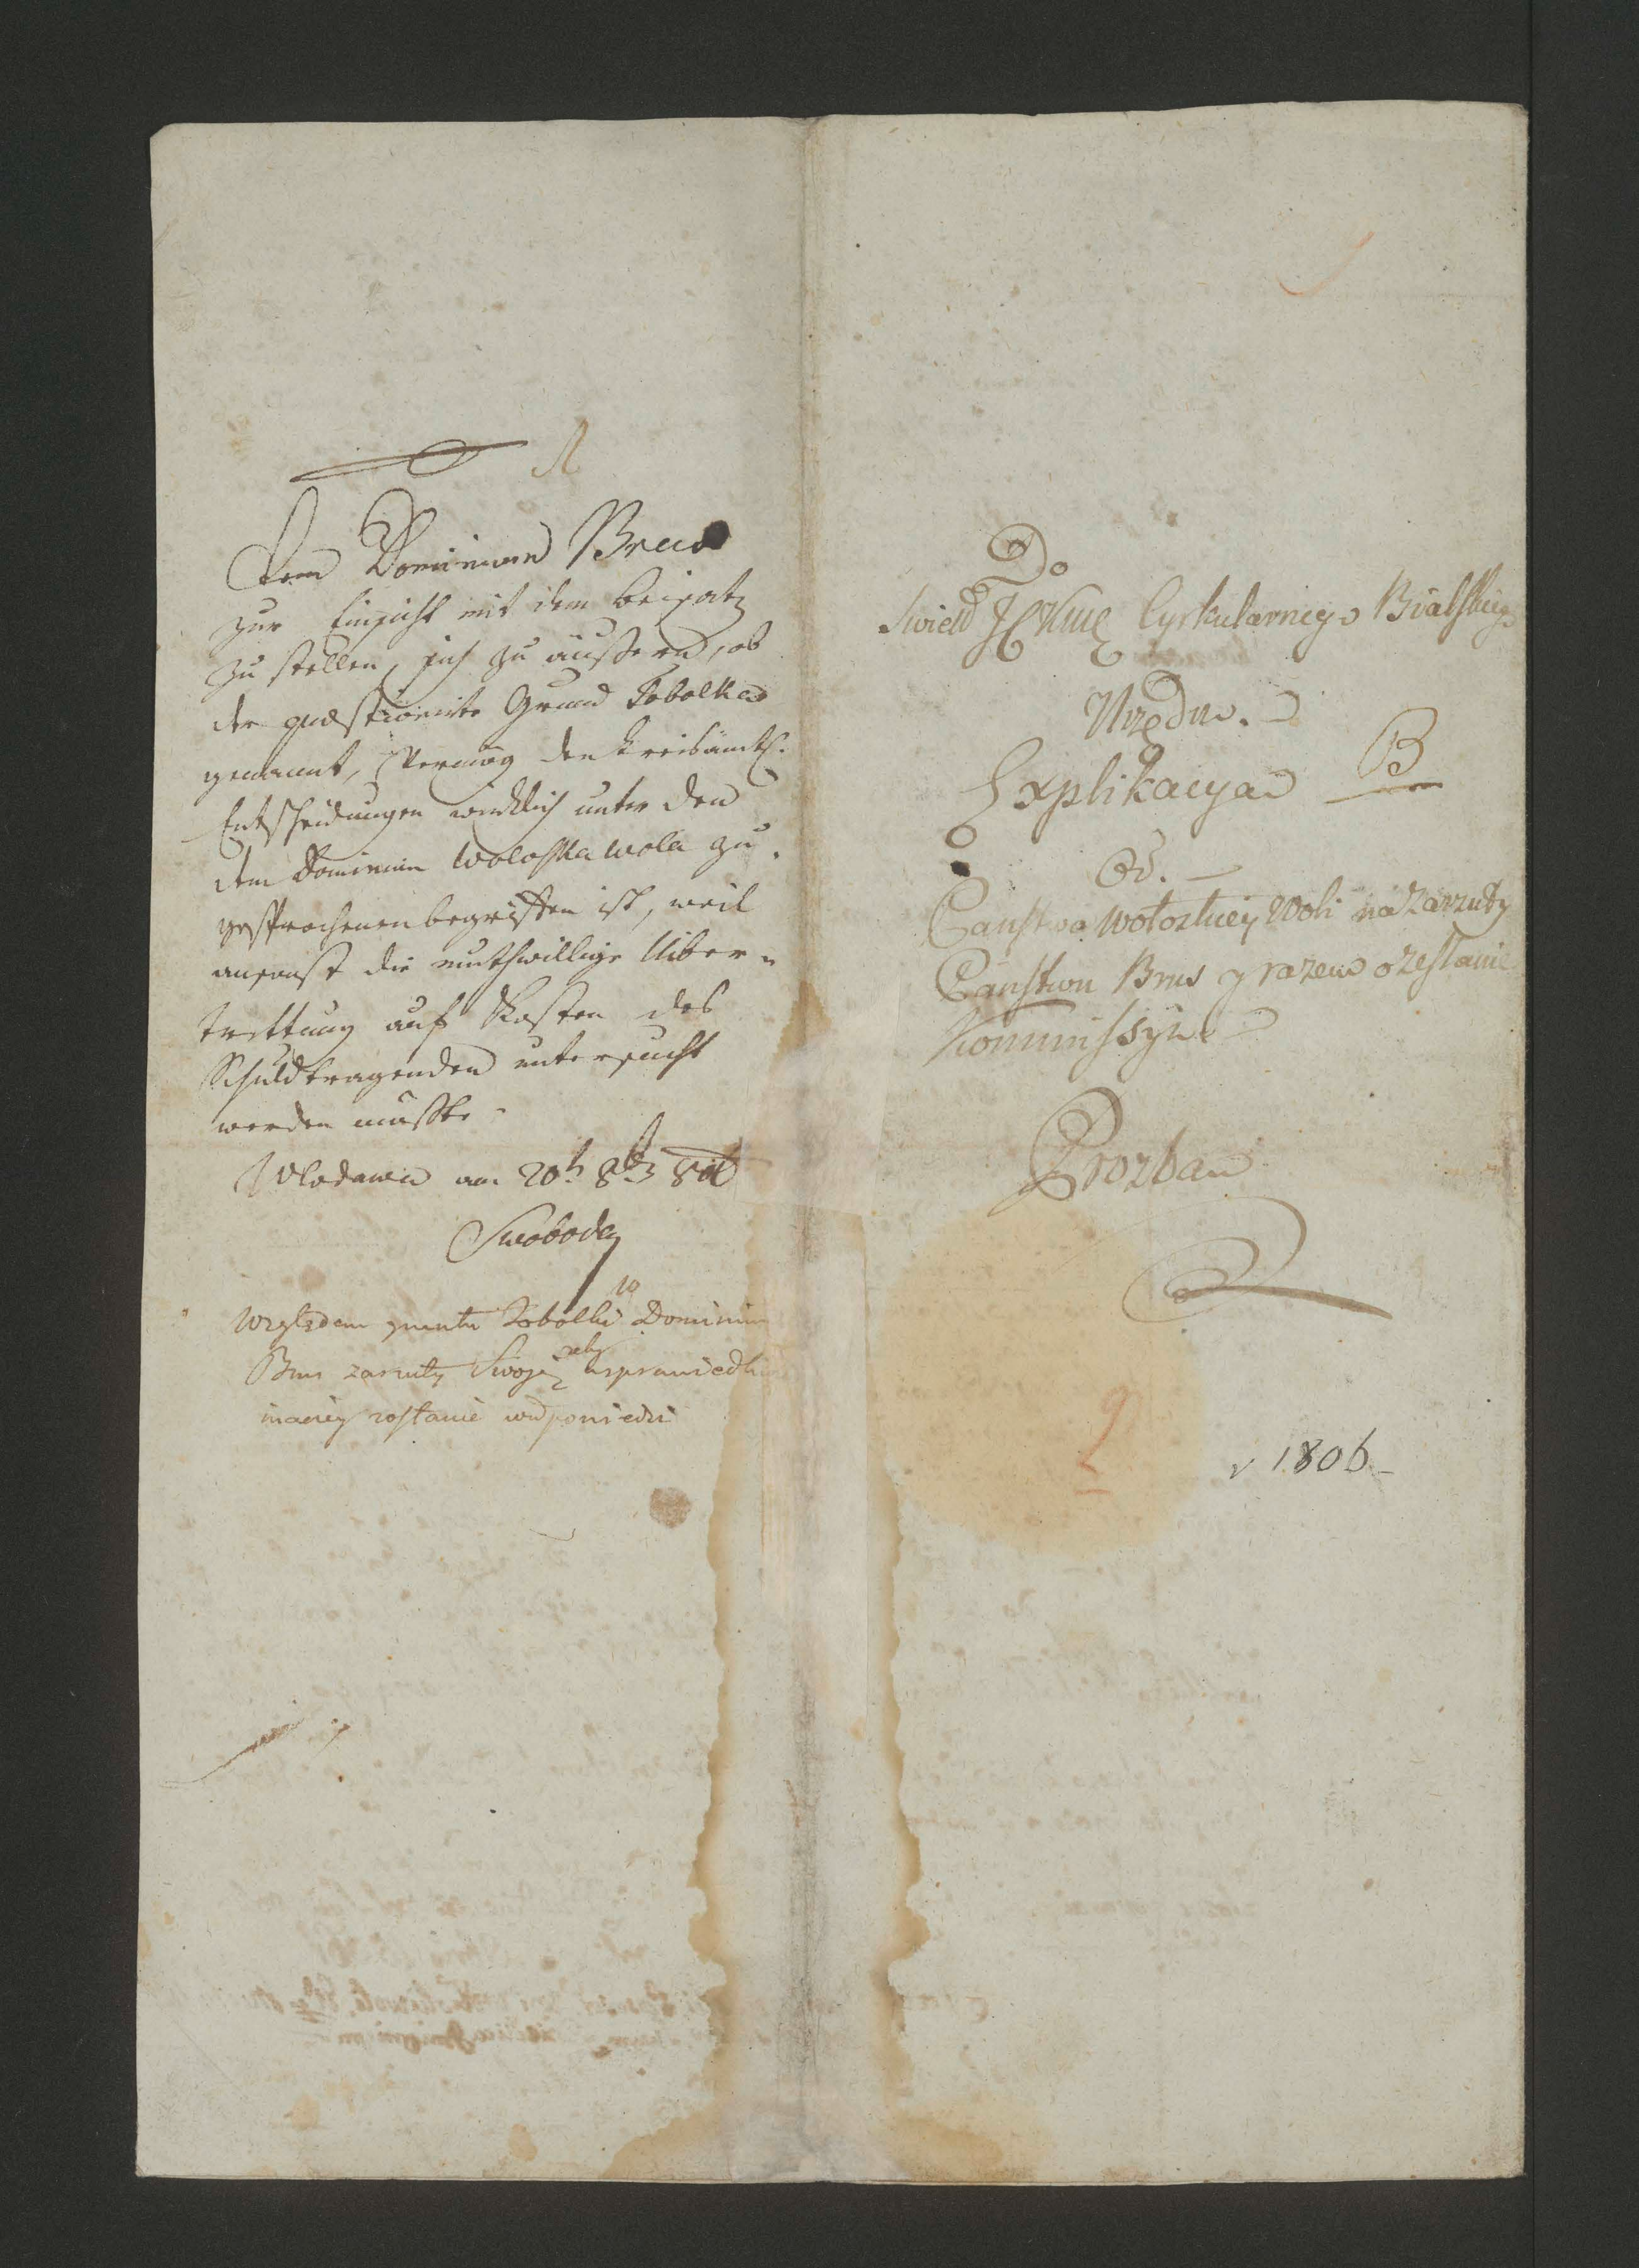 Dem Dominium Brus
zur Einsicht mit dem Beisatz
zu stellen, sich zu äußern, ob
der quæstionirte Grund Tobolka
genannt, Vermög den kreisämtl.
Entscheidungen wirklich unter den
dem Dominium Woloska wola zu
gesprochenen begriffen ist, weil
ansonst die muthwillige Uiber=
trettung auf Kosten des
Schuldtragenden untersucht
werden müßte.
Wlodawa am 20t 8b
Swoboda
Względem gruntu Tobolki Dominium
Brus zarzuty Swoje żeby
inaciey zostanie
Do
Cyrkularnego Bialskiego
Urzędu.
Explikacya B
Od.
Państwa Wołoskiey Woli na zarzuty
Państwu Brus y razem o zesłanie
Kommissyi
Prozba
2
v 1806